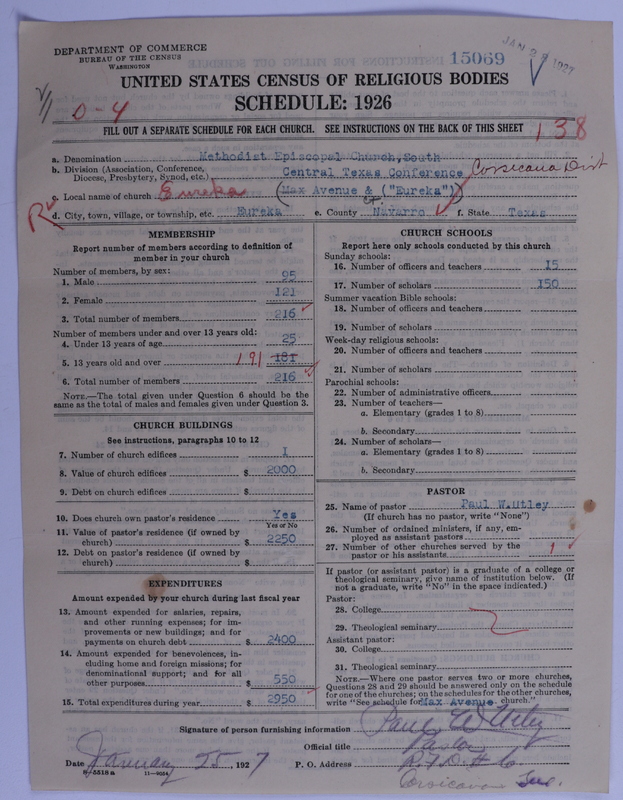 DEPARTMENT OF COMMERCE
BUREAU OF THE CENSUS
WASHINGTON
15069
JAN 29 1927
UNITED STATES CENSUS OF RELIGIOUS BODIES
SCHEDULE: 1926
0-4
FILL OUT A SEPARATE SCHEDULE FOR EACH CHURCH. SEE INSTRUCTIONS ON THE BACK OF THIS SHEET
138
a. Denomination Methodist Episcopal Church, South
b. Division (Association, Conference, Diocese, Presbytery, Synod, etc.) Central Texas Conference Corsicana Dist
c. Local name of church Eureka (Max Avenue & ("Eureka")
d. City, town, village, or township, etc. Eureka e. County Navarro f. State Texas
MEMBERSHIP
Report number of members according to definition of
member in your church
Number of members, by sex:
1. Male 95
2. Female 121
3. Total number of members 216
Number of members under and over 13 years old:
4. Under 13 years of age 25
5. 13 years old and over 191 181
6. Total number of members 216
NOTE.—The total given under Question 6 should be
same as the total of males and females given under Question 3.
CHURCH BUILDINGS
See instructions, paragraphs 10 to 12
7. Number of church edifices 1
8. Value of church edifices $ 2000
9. Debt on church edifices $
10. Does church own pastor's residence Yes
Yes or No
11. Value of pastor's residence (if owned by
church) $ 2250
12. Debt on pastor's residence (if owned by
church) $
EXPENDITURES
Amount expended by your church during last fiscal year
13. Amount expended for salaries, repairs,
and other running expenses; for im-
provements or new buildings; and for
payments on church debt $ 2400
14. Amount expended for benevolences, in-
cluding home and foreign missions; for
denominational support; and for all
other purposes $ 550
15. Total expenditures during year $ 2950
CHURCH SCHOOLS
Report here only schools conducted by this church
Sunday schools:
16. Number of officers and teachers 15
17. Number of scholars 150
Summer vacation Bible schools:
18. Number of officers and teachers
19. Number of scholars
Week-day religious schools:
20. Number of officers and teachers
21. Number of scholars
Parochial schools:
22. Number of administrative officers
23. Number of teachers—
a. Elementary (grades 1 to 8)
b. Secondary
24. Number of scholars—
a. Elementary (grades 1 to 8)
b. Secondary
PASTOR
25. Name of pastor Paul W. Utley
(If church has no pastor, write "None")
26. Number of ordained ministers, if any, em-
ployed as assistant pastors
27. Number of other churches served by the
pastor or his assistants 1
If pastor (or assistant pastor) is a graduate of a college or
theological seminary, give name of institution below. (If
not a graduate, write "No" in the space indicated.)
Pastor:
28. College
29. Theological seminary
Assistant pastor:
30. College
31. Theological seminary
NOTE.—Where one pastor serves two or more churches,
Questions 28 and 29 should be answered only on the schedule
for one of the churches; on the schedules for the other churches,
write "See schedule for Max Avenue church."
Signature of person furnishing information Paul W Utley
Official title Pastor
Date January 25, 1927 P. O. Address R.F.D. # 6
8-5518a 11-9024
Corsicana Tex.